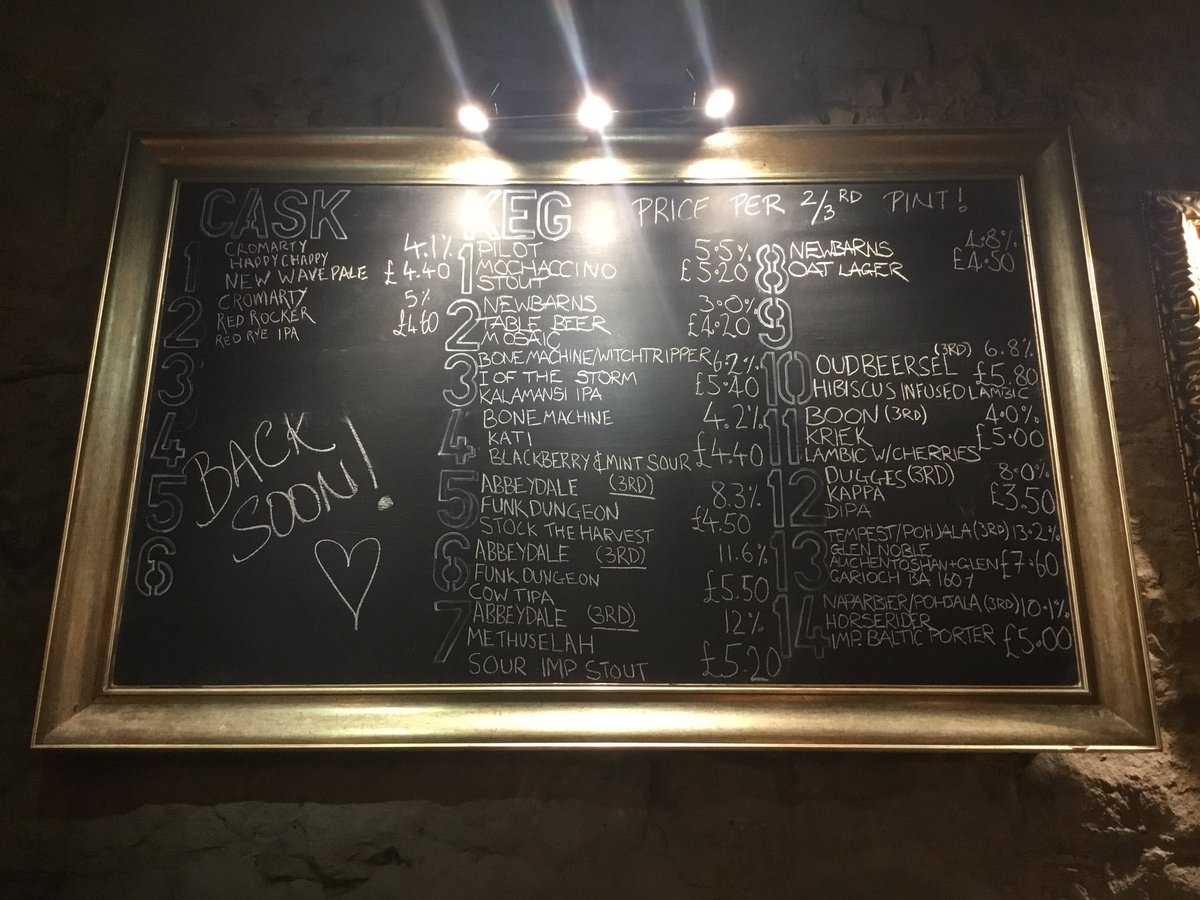 CASK
1 CROMARTY 4.1%
HAPPY CHAPPY
NEW WAVE PALE £4.40
2 CROMARTY 5%
RED ROCKER £4.60
RED RYE IPA
3
4
5
6
BACK
SOON!
KEG PRICE PER 2/3RD PINT!
1 PILOT 5.5%
MOCHACCINO £5.20
STOUT
2 NEWBARNS 3.0%
TABLE BEER £4.20
MOSAIC
3 BONE MACHINE/WITCHTRIPPER 6.2%
I OF THE STORM £5.40
KALAMANSI IPA
4 BONE MACHINE 4.2%
KATI
BLACKBERRY & MINT SOUR £4.40
5 ABBEYDALE (3RD) 8.3%
FUNK DUNGEON £4.50
STOCK THE HARVEST
6 ABBEYDALE (3RD) 11.6%
FUNK DUNGEON £5.50
COW TIPA
7 ABBEYDALE (3RD) 12%
METHUSELAH
SOUR IMP STOUT £5.20
8 NEWBARNS 4.8%
OAT LAGER £4.50
9
10 OUDBEERSEL (3RD) 6.8%
HIBISCUS INFUSED LAMBIC £5.80
11 BOON (3RD) 4.0%
KRIEK £5.00
LAMBIC W/CHERRIES
12 DUGGES (3RD) 8.0%
KAPPA £3.50
DIPA
13 TEMPEST/POHJALA (3RD) 13.2%
GLEN NOBLE
AUCHENTOSHAN+GLEN £7.60
GARIOCH BA 1607
14 NAPARBIER/POHJALA (3RD) 10.1%
HORSERIDER
IMP. BALTIC PORTER £5.00